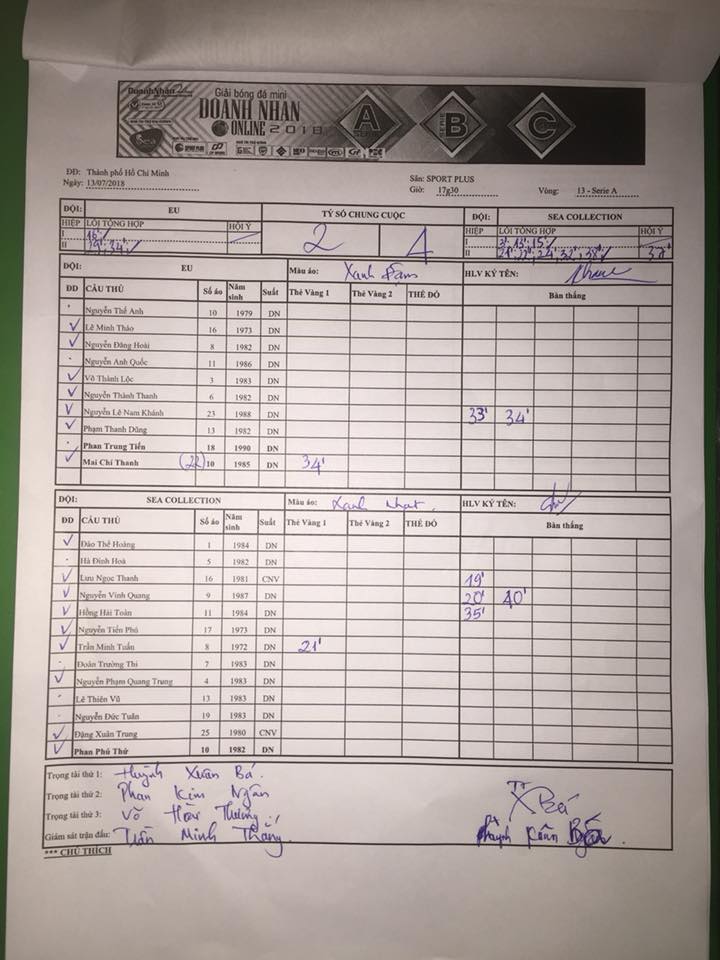 DoanhNhan
Giải bóng đá mini
DOANH NHÂN
ONLINE 2018
A
B
C
SERIE
ĐĐ: Thành phố Hồ Chí Minh
Ngày: 13/07/2018
Sân: SPORT PLUS
Giờ: 17g30 Vòng: 13 - Serie A
ĐỘI: EU TỶ SỐ CHUNG CUỘC ĐỘI: SEA COLLECTION
HIỆP LỖI TỔNG HỢP HỘI Ý 2 4 HIỆP LỖI TỔNG HỢP HỘI Ý
I 16' I 3', 13', 15'
II 29', 34' II 24', 32', 38' 37'
ĐỘI: EU Màu áo: Xanh Đậm HLV KÝ TÊN:
ĐD CẦU THỦ Số áo Năm sinh Suất Thẻ Vàng 1 Thẻ Vàng 2 THẺ ĐỎ Bàn thắng
Nguyễn Thế Anh 10 1979 DN
Lê Minh Thảo 16 1973 DN
Nguyễn Đăng Hoài 8 1982 DN
Nguyễn Anh Quốc 11 1986 DN
Võ Thành Lộc 3 1983 DN
Nguyễn Thành Thanh 6 1982 DN
Nguyễn Lê Nam Khánh 23 1988 DN 33' 34'
Phạm Thanh Dũng 13 1982 DN
Phan Trung Tiến 18 1990 DN
Mai Chí Thanh (22) 10 1985 DN 34'
ĐỘI: SEA COLLECTION Màu áo: Xanh Nhạt HLV KÝ TÊN:
ĐD CẦU THỦ Số áo Năm sinh Suất Thẻ Vàng 1 Thẻ Vàng 2 THẺ ĐỎ Bàn thắng
Đào Thế Hoàng 1 1984 DN
Hà Đình Hoà 5 1982 DN
Lưu Ngọc Thanh 16 1981 CNV 19'
Nguyễn Vinh Quang 9 1987 DN 20' 40'
Hồng Hải Toàn 11 1984 DN 35'
Nguyễn Tiến Phú 17 1973 DN
Trần Minh Tuấn 8 1972 DN 21'
Đoàn Trường Thi 7 1983 DN
Nguyễn Phạm Quang Trung 4 1983 DN
Lê Thiên Vũ 13 1983 DN
Nguyễn Đức Tuân 19 1983 DN
Đặng Xuân Trung 25 1980 CNV
Phan Phú Thứ 10 1982 DN
Trọng tài thứ 1: Huỳnh Xuân Bá
Trọng tài thứ 2: Phan Kim Ngân
Trọng tài thứ 3: Võ Hoài Thương
Giám sát trận đấu: Trần Minh Thắng
TT
XBá
*** CHÚ THÍCH